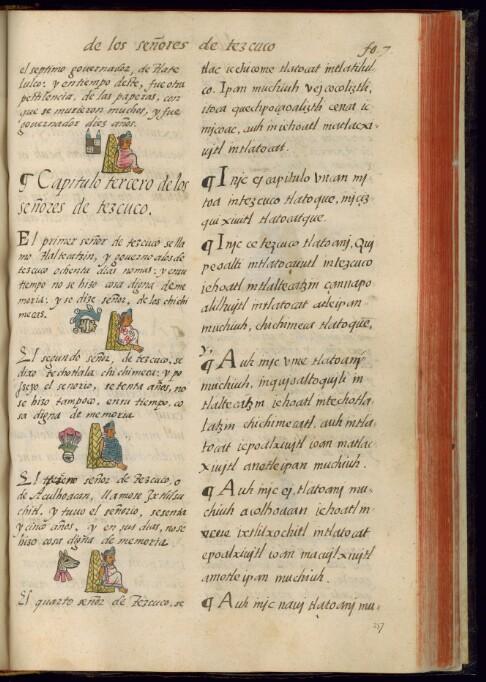 de los señores de tezcuco fo. 7
el septimo gouernador, de tlate
lulco: y entiempo deste, fue otra
pestilencia, de las paperas, con
que se murieron muchos, y fue
gouernador diez años.
¶ Capitulo tercero de los
señores de tezcuco.
El primer señor de tezcuco se lla
mo tlaltecatzin, y gouerno alos de
tezcuco ochenta dias nomas: y en su
tiempo no se hizo cosa digna de me
moria: y se dize señor, de los chichi
mecas.
El segundo señor, de tezcuco, se
dixo techotlala chichimeca: y po
seyo el senorio, setenta años, no
se hizo tampoco, en su tiempo, co
sa digna de memoria
El tercero señor de tezcuco, o
de Aculhoacan, llamose Ixtlilsu
chitl, y tuuo el señorio, sesenta
y cinco años, y en sus dias, no se
hizo cosa digna de memoria
El quarto señor de Tezcuco, se
tlac icchicome tlatocat intlatilul
co. Ipan muchiuh vej cocoliztli,
itoca quechpoçaoaliztli cenca ic
micoac, auh in iehoatl matlacxi
ujtl intlatocat.
¶ Injc ej capitulo vncan mj
toa intezcuco tlatoque, in izqui
xiuitl tlatocatque.
¶ Injc ce tezcuco tlatoanj, qui
peoalti intlatocaiutl intezcuco
iehoatl intlaltecatzin çannapo
alilhuitl intlatocat atleipan
muchiuh, chichimeca tlatoque.
¶ Auh injc vme tlatoanj
muchiuh, inquioaltoquili in
tlaltecatzin iehoatl intechotla
latzin chichimecatl, auh intla
tocat iepoalxiujtl ioan matlac
xiujtl anotleipan muchiuh.
¶ Auh injc ej, tlatoanj mu
chiuh acolhoacan iehoatl in
veue ixtlilxochitl intlatocat
epoalxiujtl ioan macujlxiujtl
amotleipan muchiuh.
¶ Auh injc nauj tlatoanj mu
257